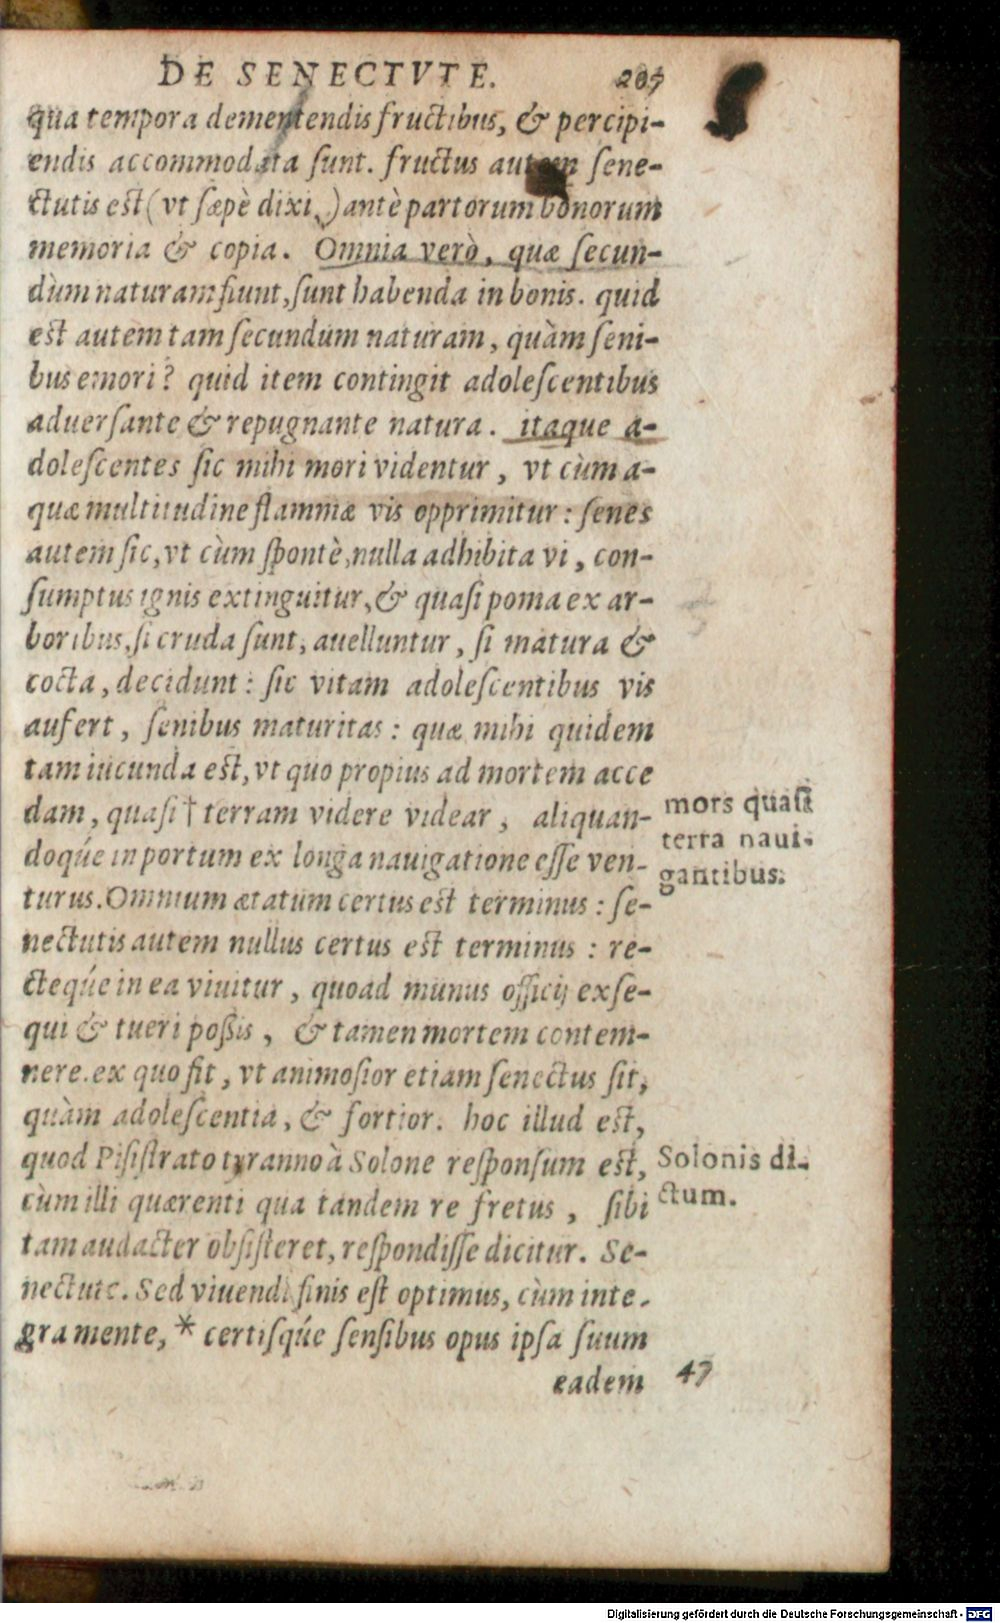 DE SENECTVTE. 207
qua tempora demetendis fructibus, & percipi-
endis accommodata sunt. fructus autem sene-
ctutis est (vt sæpè dixi,) antè partorum bonorum
memoria & copia. Omnia verò, quæ secun-
dùm naturam fiunt, sunt habenda in bonis. quid
est autem tam secundum naturam, quàm seni-
bus emori? quid item contingit adolescentibus
aduersante & repugnante natura. itaque a-
dolescentes sic mihi mori videntur, vt cùm a-
quæ multitudine flammæ vis opprimitur: senes
autem sic, vt cùm spontè, nulla adhibita vi, con-
sumptus ignis extinguitur, & quasi poma ex ar-
boribus, si cruda sunt, auelluntur, si matura &
cocta, decidunt: sic vitam adolescentibus vis
aufert, senibus maturitas: quæ mihi quidem
tam iucunda est, vt quo propius ad mortem acce
dam, quasi † terram videre videar, aliquan-
doqúe in portum ex longa nauigatione esse ven-
turus. Omnium ætatum certus est terminus: se-
nectutis autem nullus certus est terminus: re-
cteqúe in ea viuitur, quoad munus officij exse-
qui & tueri possis, & tamen mortem contem-
nere. ex quo fit, vt animosior etiam senectus sit,
quàm adolescentia, & fortior. hoc illud est,
quod Pisistrato tyranno à Solone responsum est,
cùm illi quærenti qua tandem re fretus, sibi
tam audacter obsisteret, respondisse dicitur. Se-
nectute. Sed viuendi finis est optimus, cùm inte-
gra mente, * certisqúe sensibus opus ipsa suum
eadem
mors quasi
terra naui-
gantibus.
Solonis di-
ctum.
47
Digitalisierung gefördert durch die Deutsche Forschungsgemeinschaft - DFG